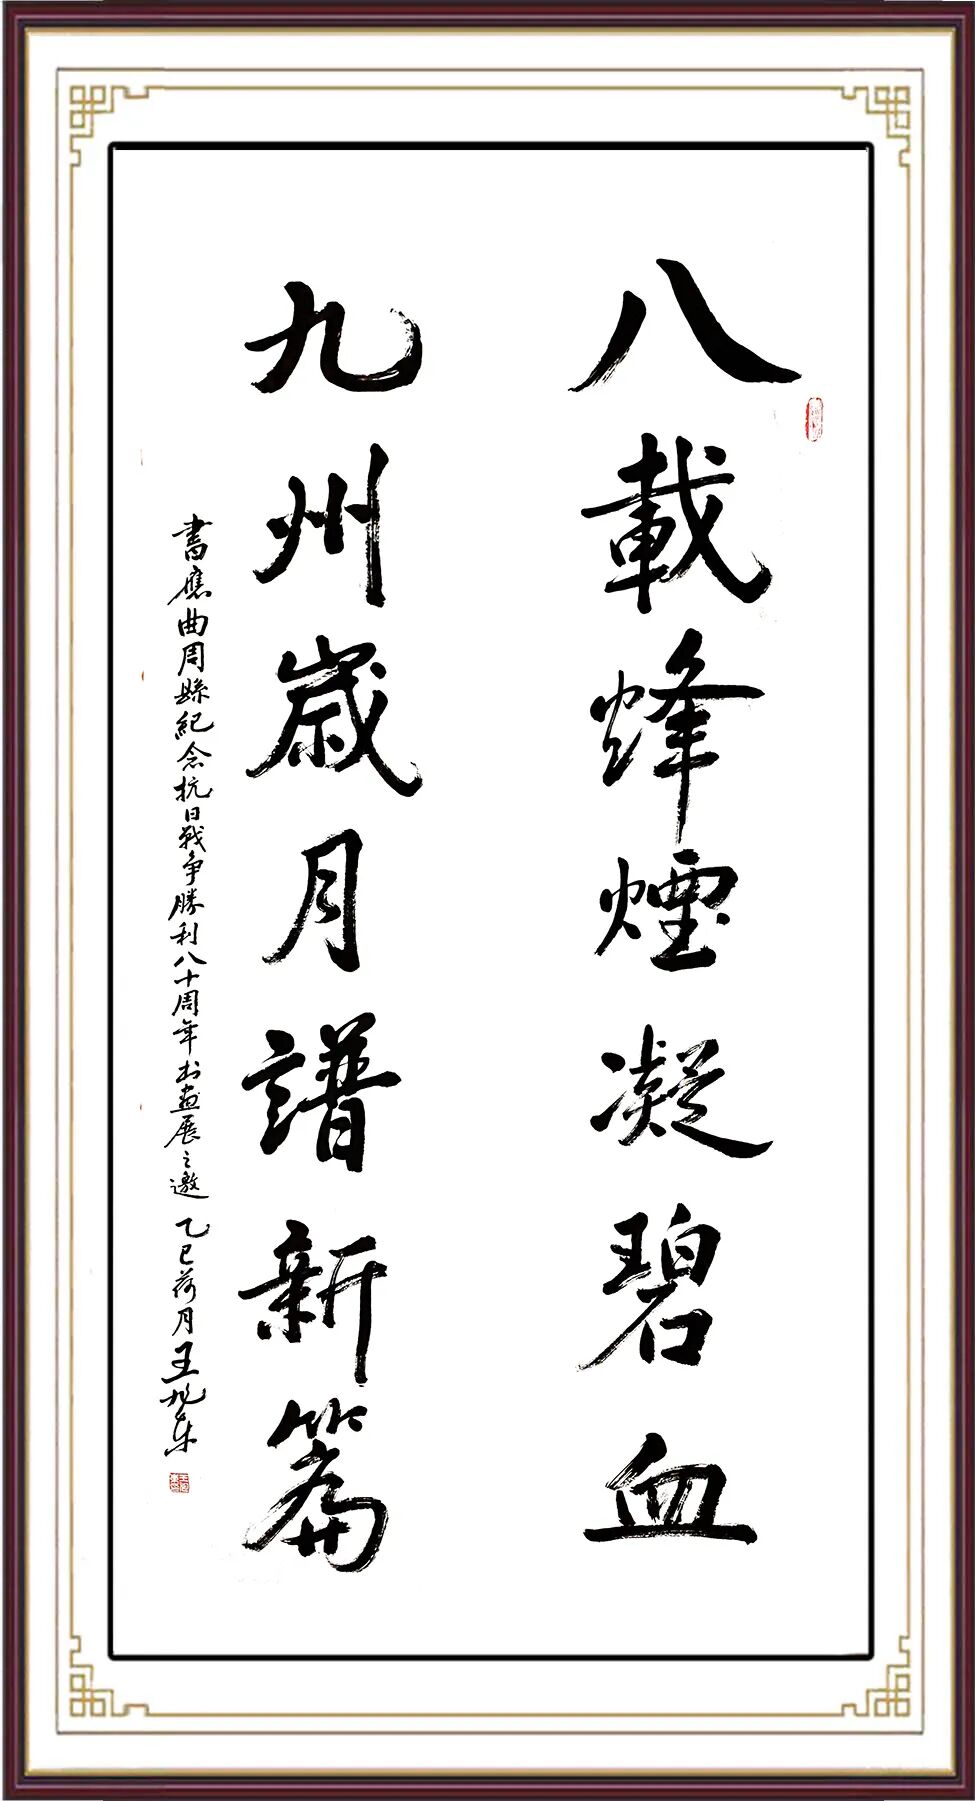 八載烽煙凝碧血
九州歲月譜新篇
書應曲周縣紀念抗日戰爭勝利八十周年书画展之邀 乙巳荷月王旭东